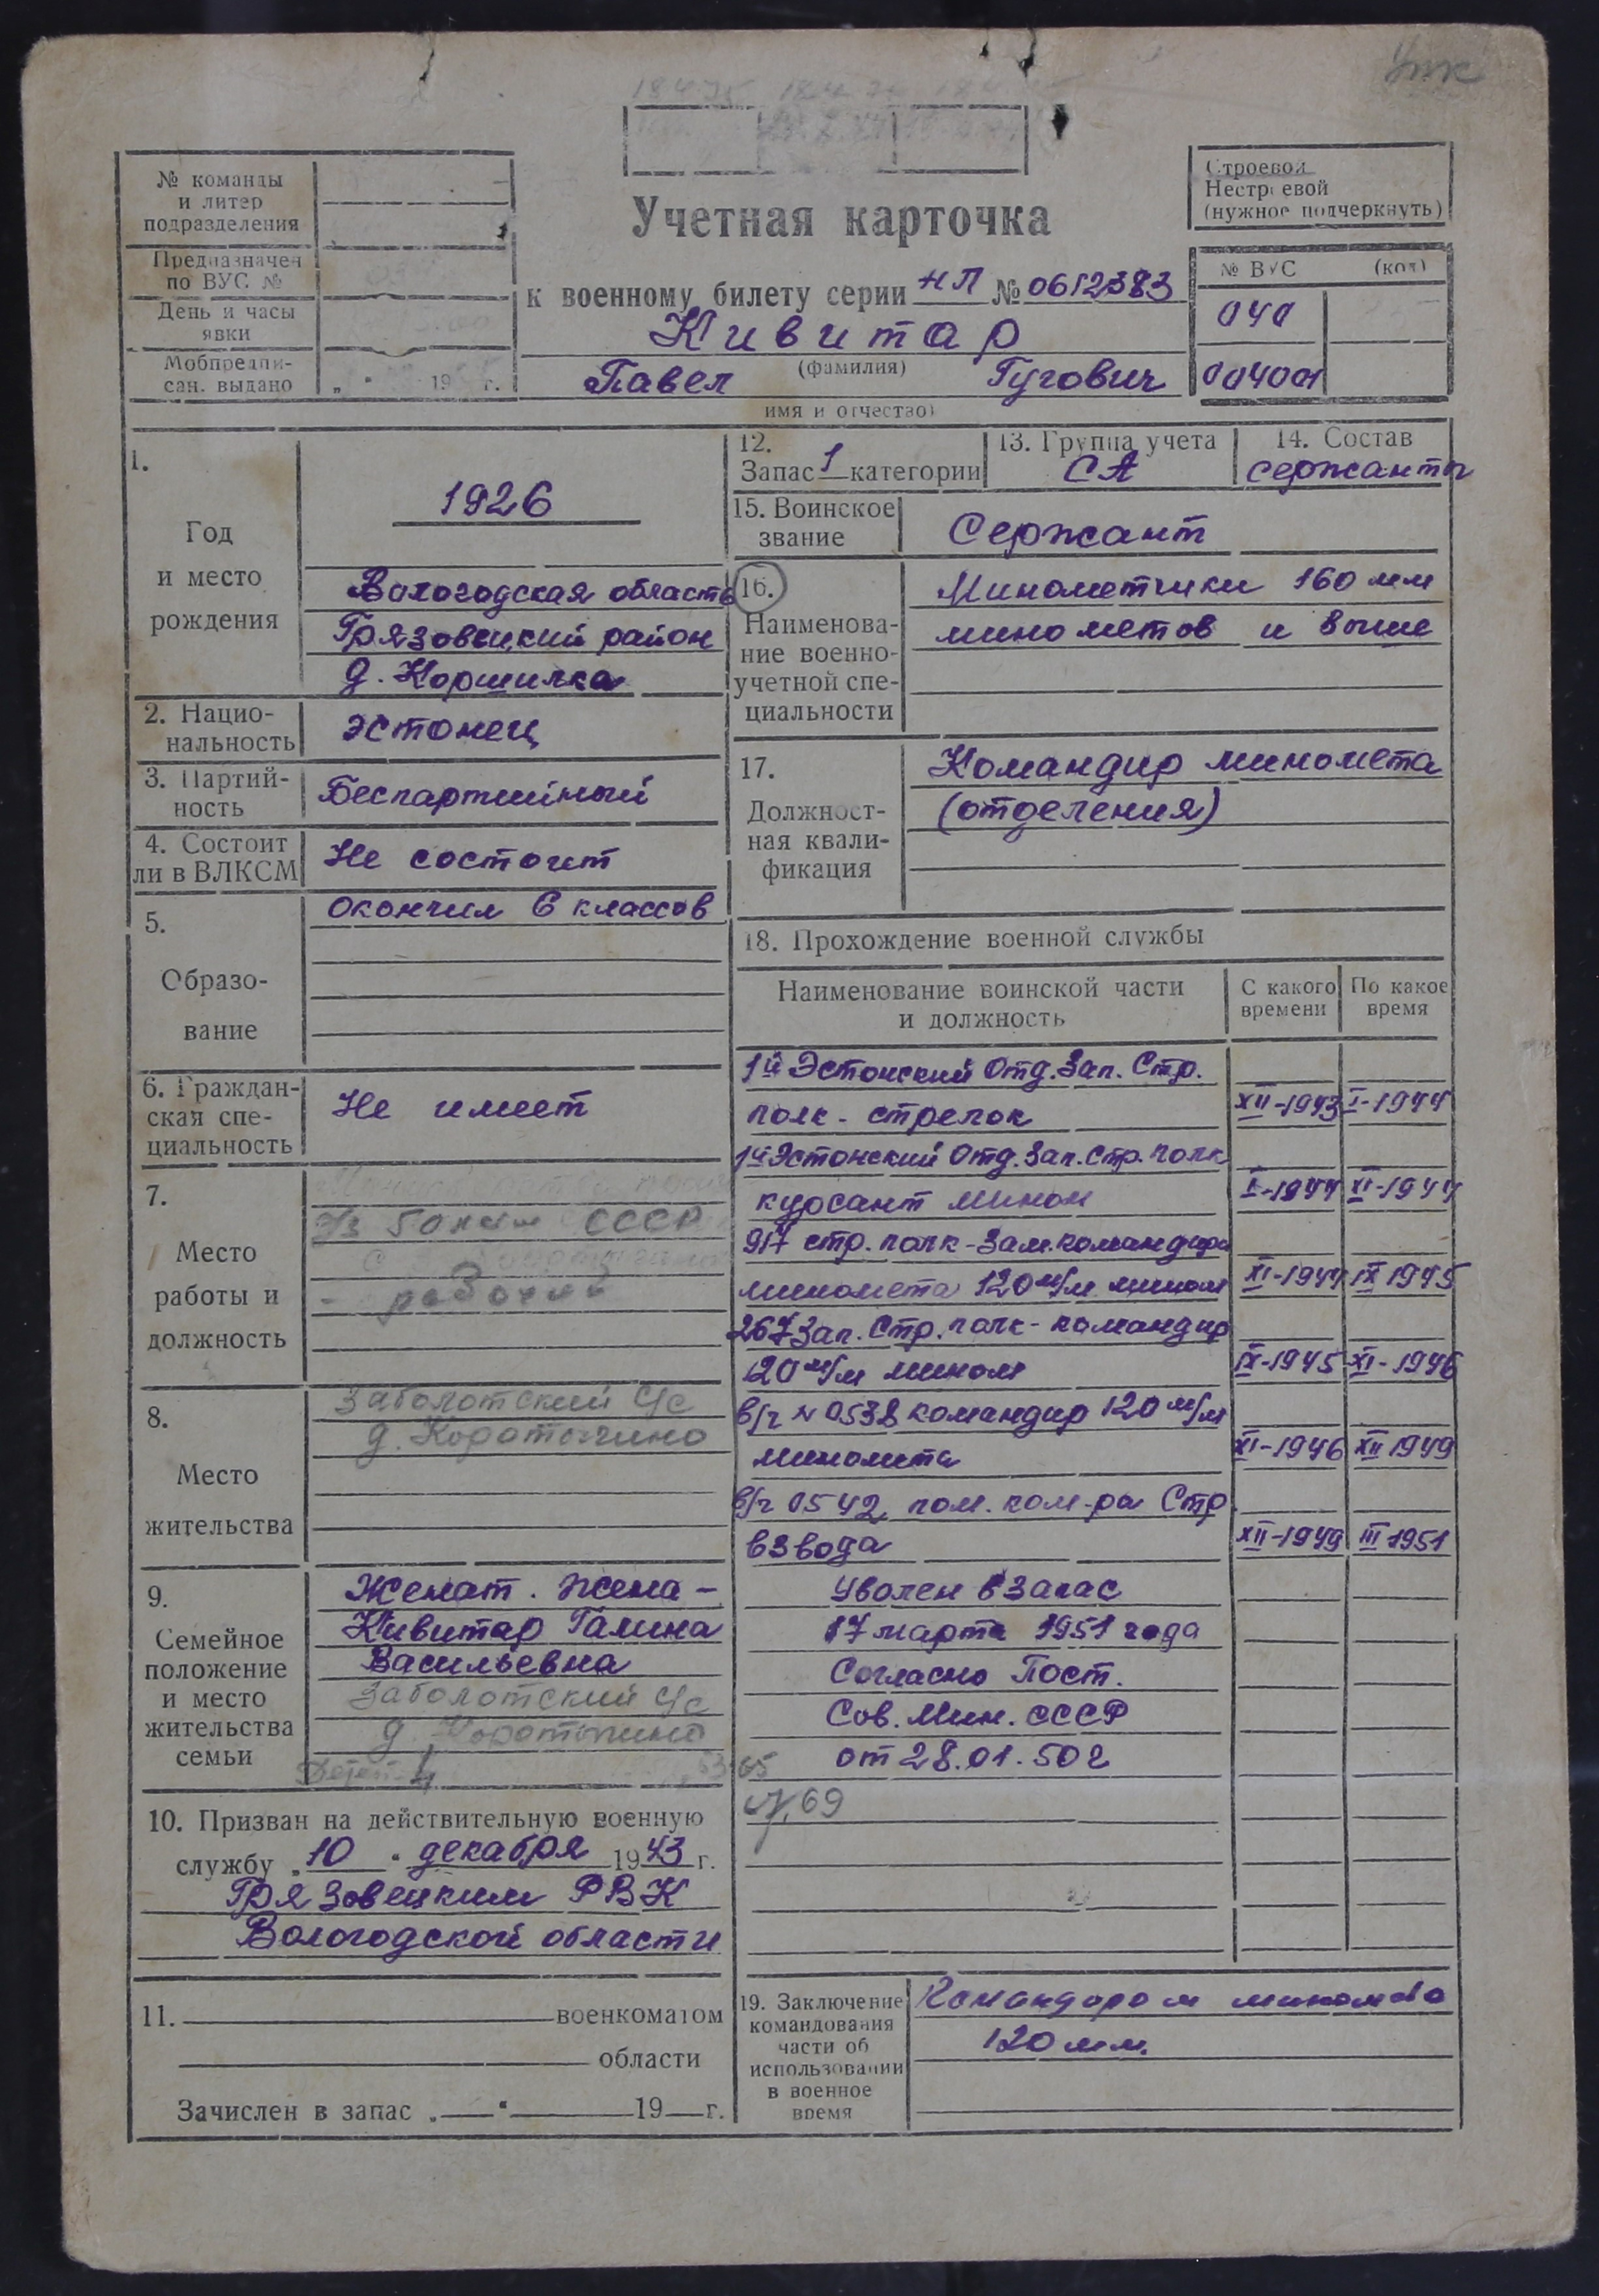 Упк
№ команды
и литер
подразделения
Предназначен
по ВУС №
День и часы
явки
Мобпредпи-
сан. выдано „ “ 19 г.
Строевой
Нестроевой
(нужное подчеркнуть)
Учетная карточка
к военному билету серии НП № 0612383
Кивитар
(фамилия)
Павел Гугович
имя и отчество)
№ ВУС (код)
040
004001
1.
Год
и место
рождения
1926
Вологодская область
Грязовецкий район
д. Коршилка
2. Нацио-
нальность
эстонец
3. Партий-
ность
Беспартийный
4. Состоит
ли в ВЛКСМ
Не состоит
5.
Образо-
вание
Окончил 6 классов
6. Граждан-
ская спе-
циальность
Не имеет
7.
Место
работы и
должность
50 СССР
- рабочий
8.
Место
жительства
Заболотский с/с
д. Коротыгино
9.
Семейное
положение
и место
жительства
семьи
Женат. Жена -
Кивитар Галина
Васильевна
Заболотский с/с
д. Коротыгино
Детей - 4
10. Призван на действительную военную
службу „10“ декабря 1943 г.
Грязовецким РВК
Вологодской области
11. военкоматом
области
Зачислен в запас „ “ 19 г.
12.
Запас 1 категории
13. Группа учета
СА
14. Состав
сержанты
15. Воинское
звание
Сержант
16.
Наименова-
ние военно-
учетной спе-
циальности
Минометчики 160 мм
минометов и выше
17.
Должност-
ная квали-
фикация
Командир миномета
(отделения)
18. Прохождение военной службы
Наименование воинской части
и должность
С какого
времени
По какое
время
1й Эстонский Отд. Зап. Стр.
полк - стрелок XII-1943 I-1944
1й Эстонский Отд. Зап. Стр. полк
курсант мином I-1944 XI-1944
917 стр. полк - Зам. командира
миномета 120 м/м мином XI-1944 IX 1945
267 Зап. Стр. полк - командир
120 м/м мином IX-1945 XI-1946
в/ч N 0538 командир 120 м/м
миномета XI-1946 XII 1949
в/ч 0542 пом. ком-ра Стр
взвода XII-1949 III 1951
Уволен в запас
17 марта 1951 года
Согласно Пост.
Сов. Мин. СССР
от 28.01.50 г
69
19. Заключение
командования
части об
использовании
в военное
время
Командиром миномета
120 мм.